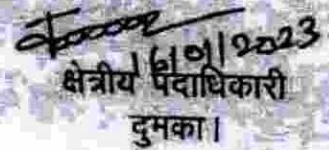 16/01/2023
क्षेत्रीय पदाधिकारी
दुमका।